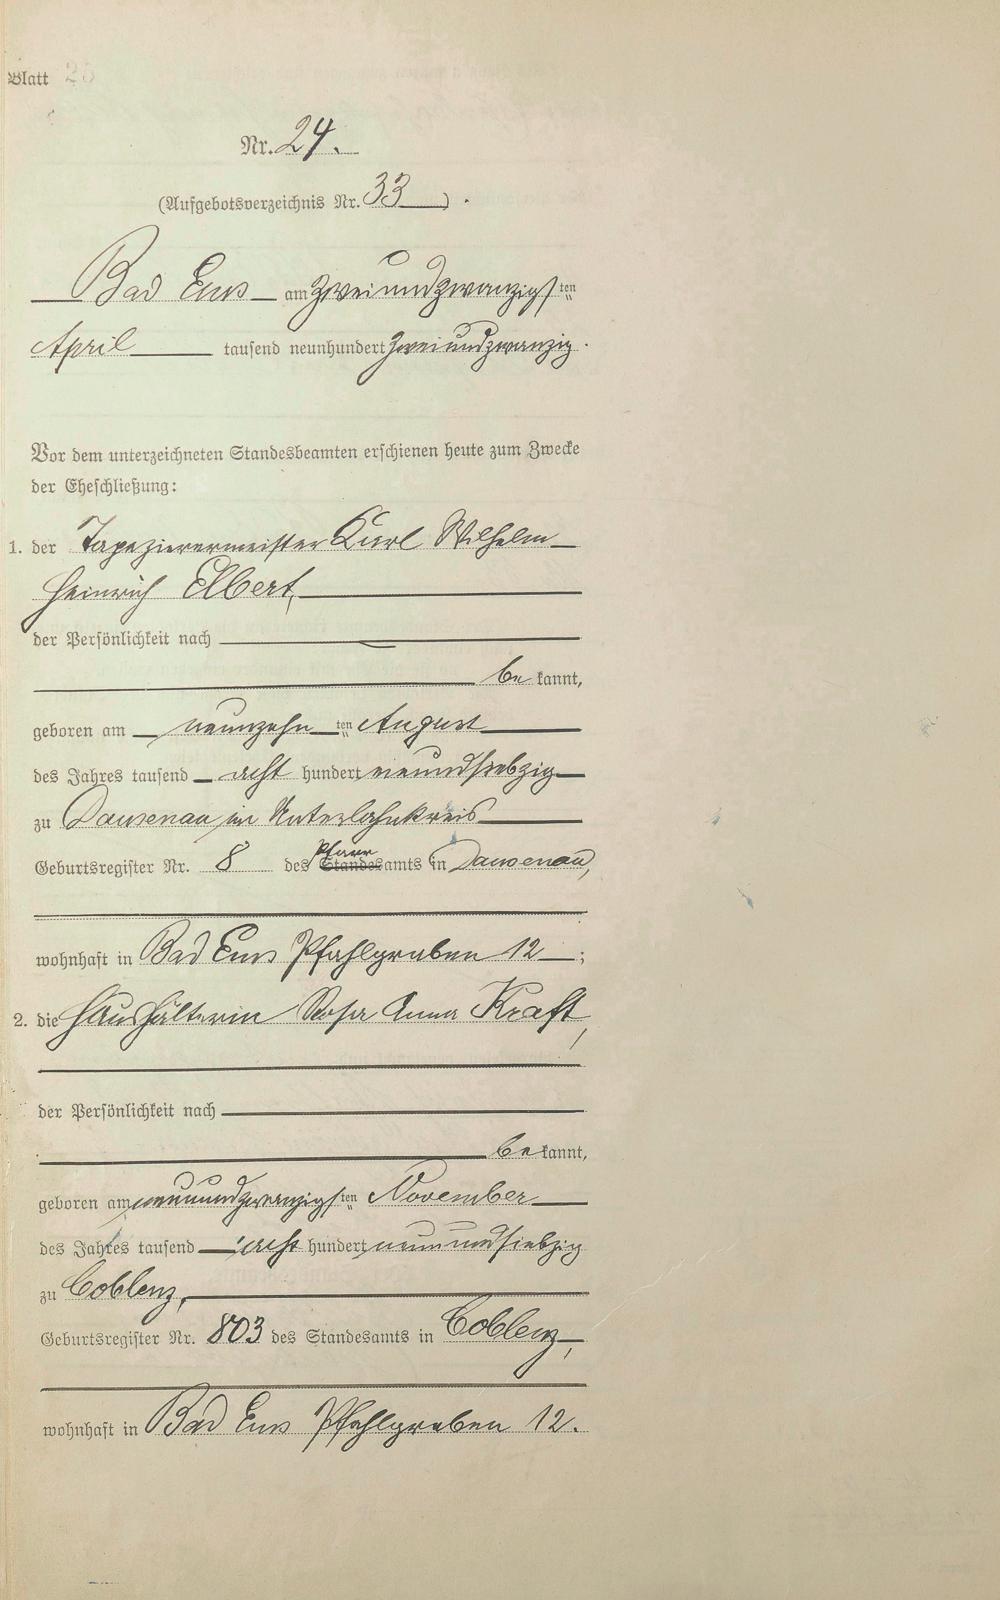 Blatt 23
Nr. 24.
(Aufgebotsverzeichnis Nr. 33).
Bad Ems am zweiundzwanzigsten
April tausend neunhundert zweiundzwanzig.
Vor dem unterzeichneten Standesbeamten erschienen heute zum Zwecke
der Eheschließung:
1. der Tapezierermeister Karl Wilhelm
Heinrich Elbert,
der Persönlichkeit nach
bekannt,
geboren am neunzehnten August
des Jahres tausend acht hundert neunundsiebzig
zu Dausenau im Unterlahnkreis
Geburtsregister Nr. 8 des Pfarr Standesamts in Dausenau,
wohnhaft in Bad Ems Pfahlgraben 12;
2. die Haushälterin Rosa Anna Kraft,
der Persönlichkeit nach
bekannt,
geboren am neunundzwanzigsten November
des Jahres tausend acht hundert neunundsiebzig
zu Coblenz,
Geburtsregister Nr. 803 des Standesamts in Coblenz,
wohnhaft in Bad Ems Pfahlgraben 12.